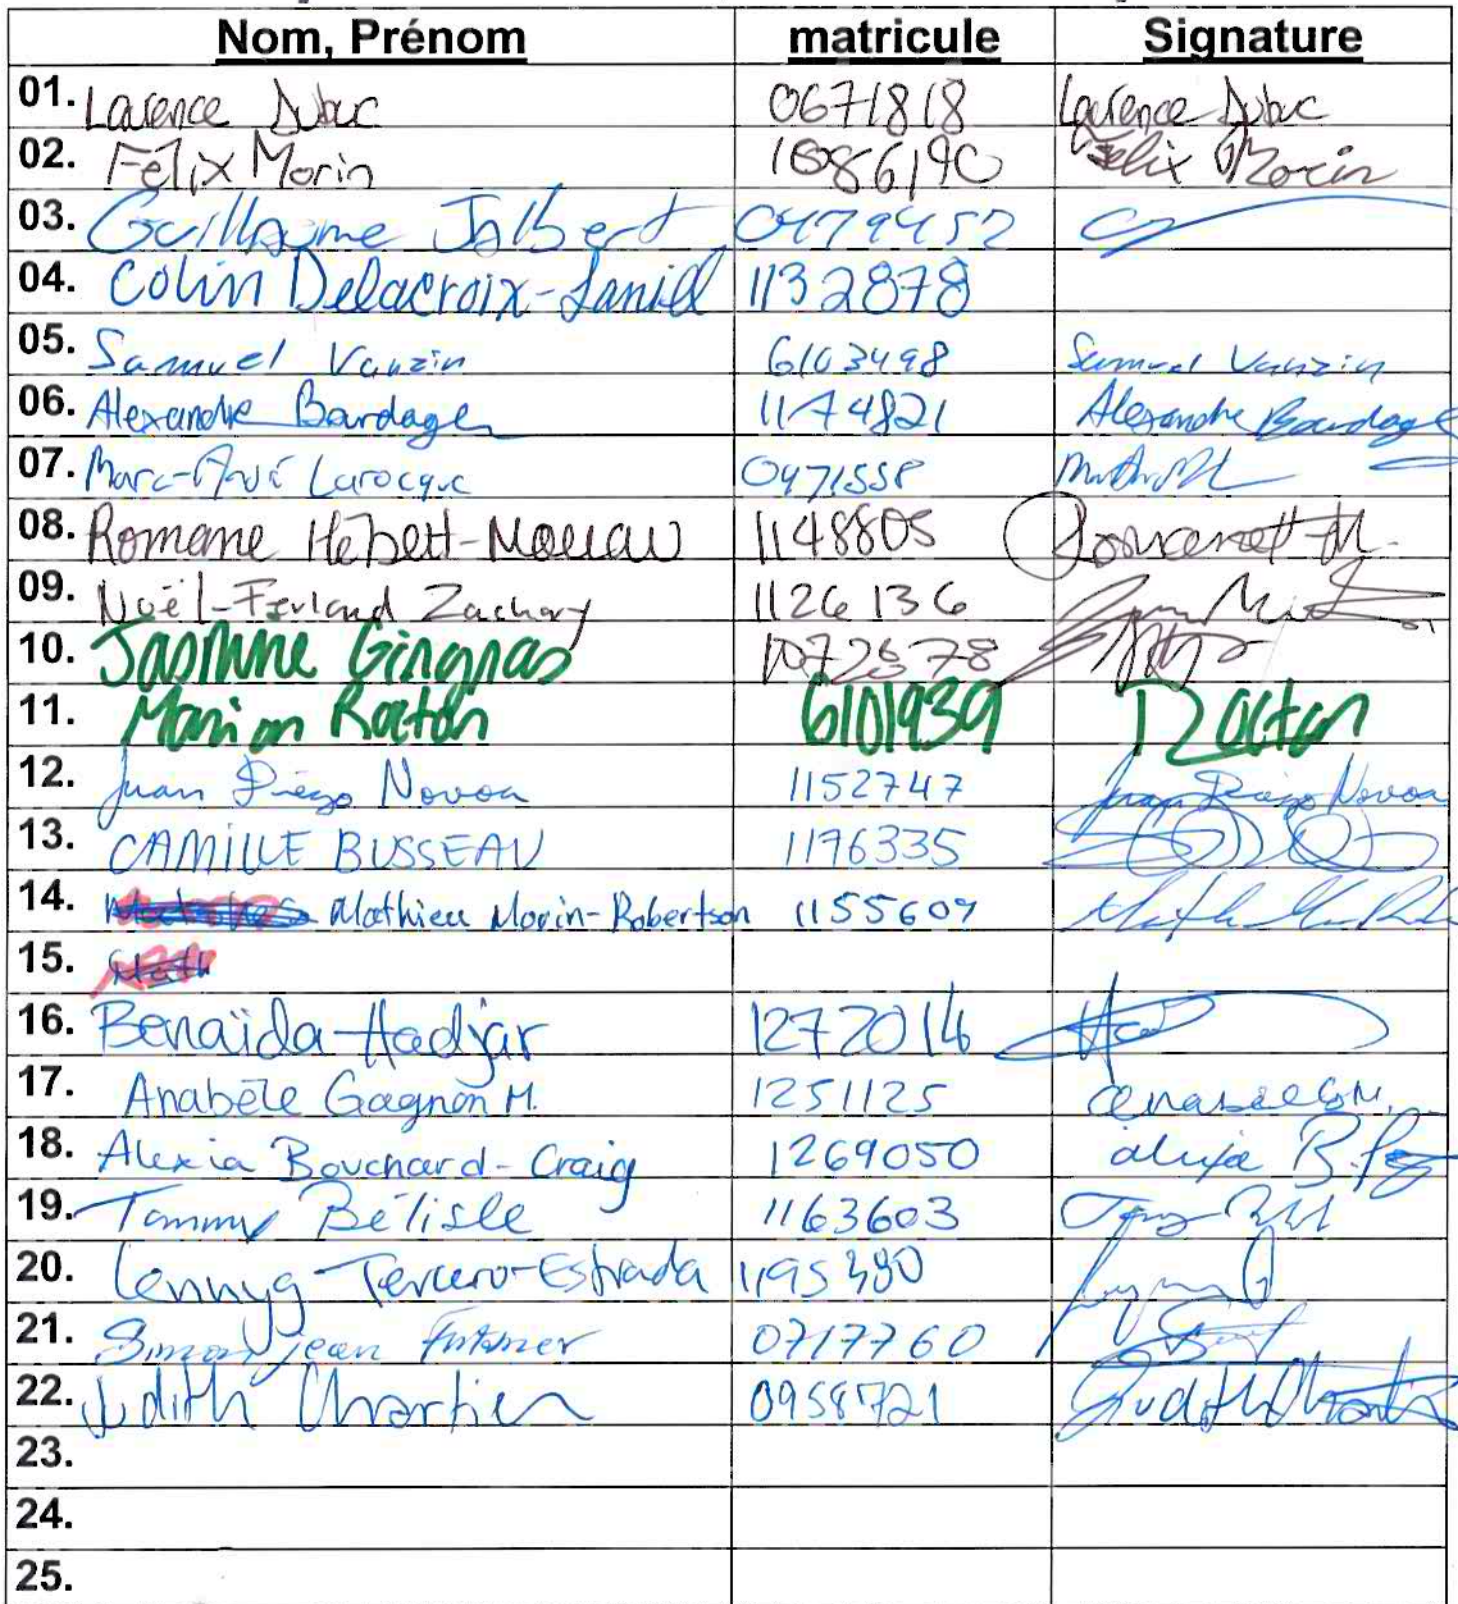 Nom, Prénom matricule Signature
01. Laurence Dubuc 0671818 Laurence Dubuc
02. Félix Morin 1086190 Félix Morin
03. Guillaume Jalbert 0479452
04. Colin Delacroix-Laniel 1132878
05. Samuel Vanzin 6103498 Samuel Vanzin
06. Alexandre Bardagen 1174821 Alexandre
07. Marc-André Larocque 0471558
08. Romane Hébert-Moreau 1148805
09. Noël-Ferland Zachary 1126136
10. Jasmine Gingras
11. Marion Racton 6101939 Racton
12. Juan Diego Novoa 1152747 Juan Diego Novoa
13. CAMILLE BUSSEAU 1176335
14. Mathieu Morin-Robertson 1155609
15.
16. Benaïda Hadjar 1272014
17. Anabèle Gagnon M. 1251125
18. Alexia Bouchard-Craig 1269050
19. Tommy Bélisle 1163603
20. Lennyg Tercero-Estrada 1195380
21. Simon jean 0717760
22. Judith Chartier 0958721 Judith
23.
24.
25.